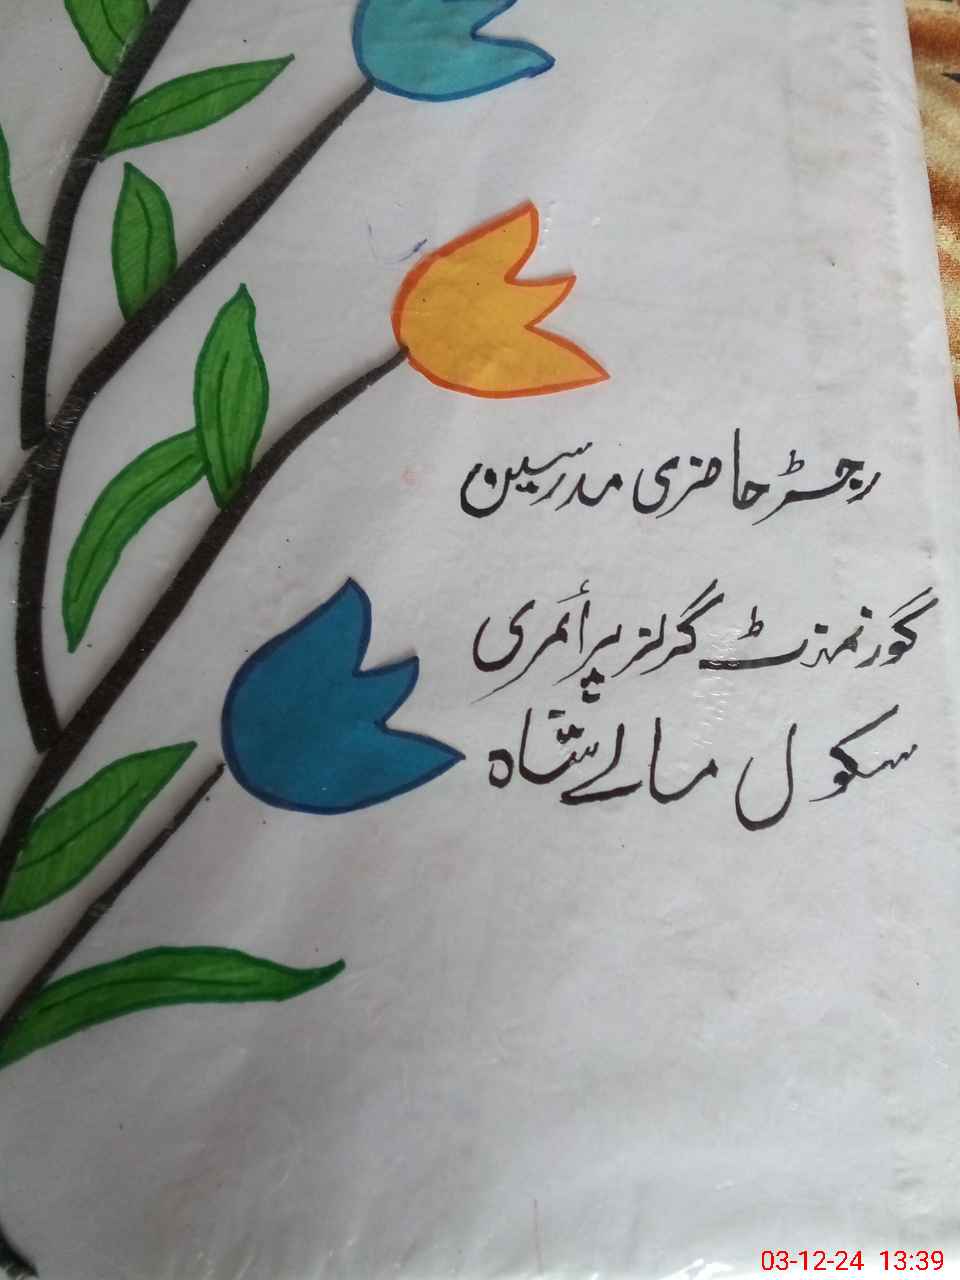 رجسٹر حاضری مدرسین
گورنمنٹ گرلز پرائمری
سکول مالے شاہ
03-12-24 13:39